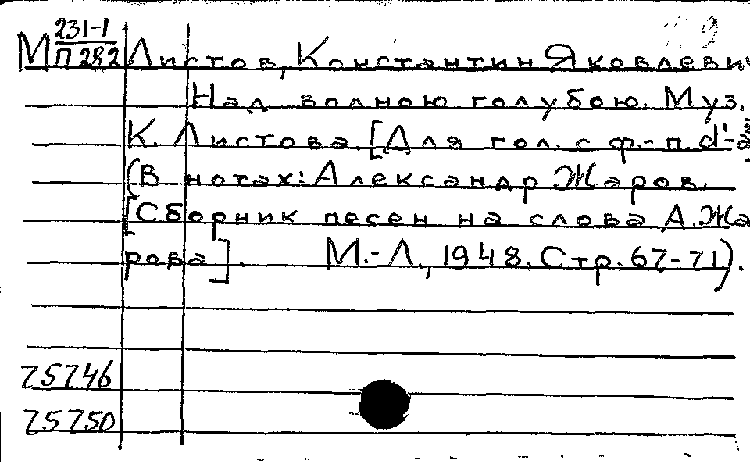 М 231-1
П 282
Листов, Константин Яковлевич
Над волною голубою. Муз.
К. Листова. [Для гол. с ф.-п. d¹-
(В нотах: Александр Жаров.
[Сборник песен на слова А. Жа
рова]. М.-Л., 1948. Стр. 67-71).
75746
75750